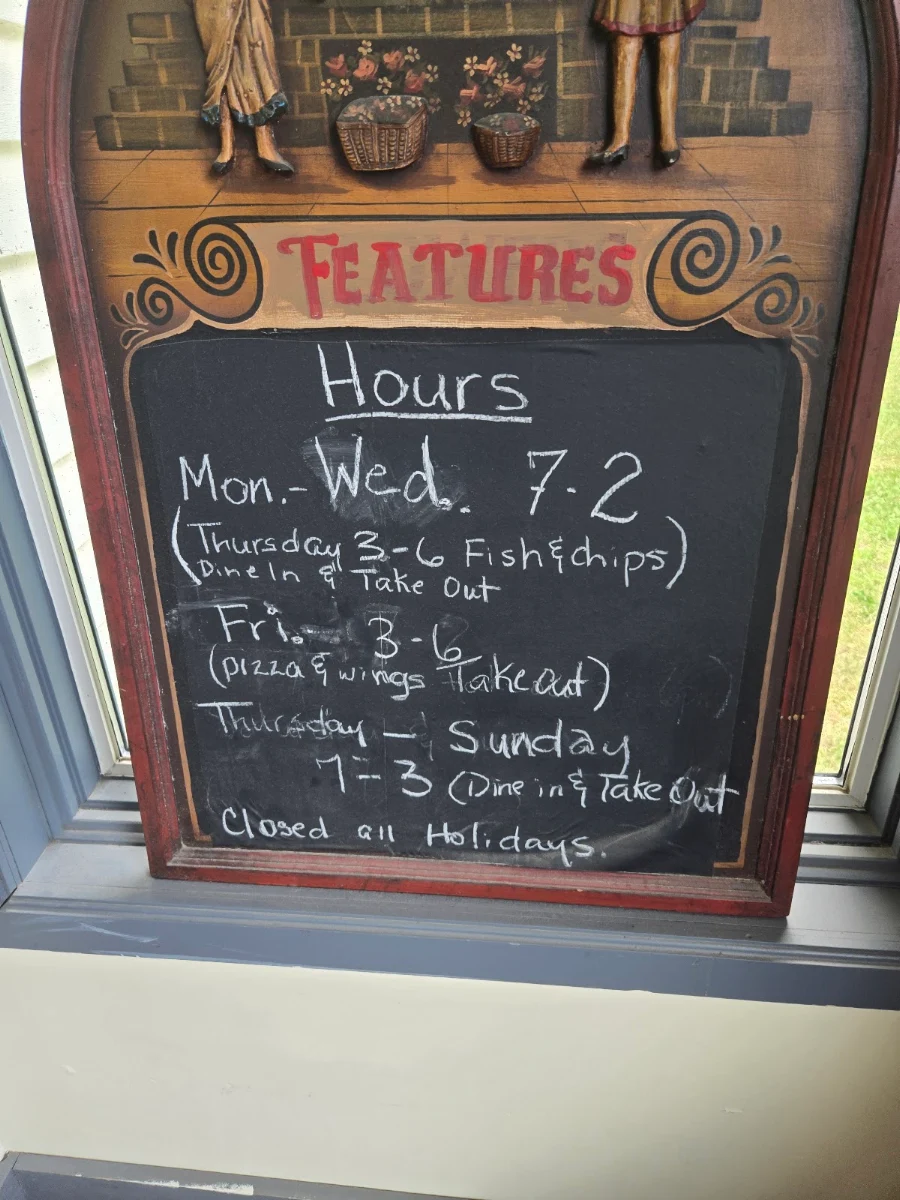 FEATURES
Hours
Mon.- Wed. 7-2
(Thursday 3-6 Fish & chips)
Dine In & Take Out
Fri. - 3-6
(pizza & wings Take out)
Thursday - Sunday
7-3 (Dine in & Take Out
Closed all Holidays.